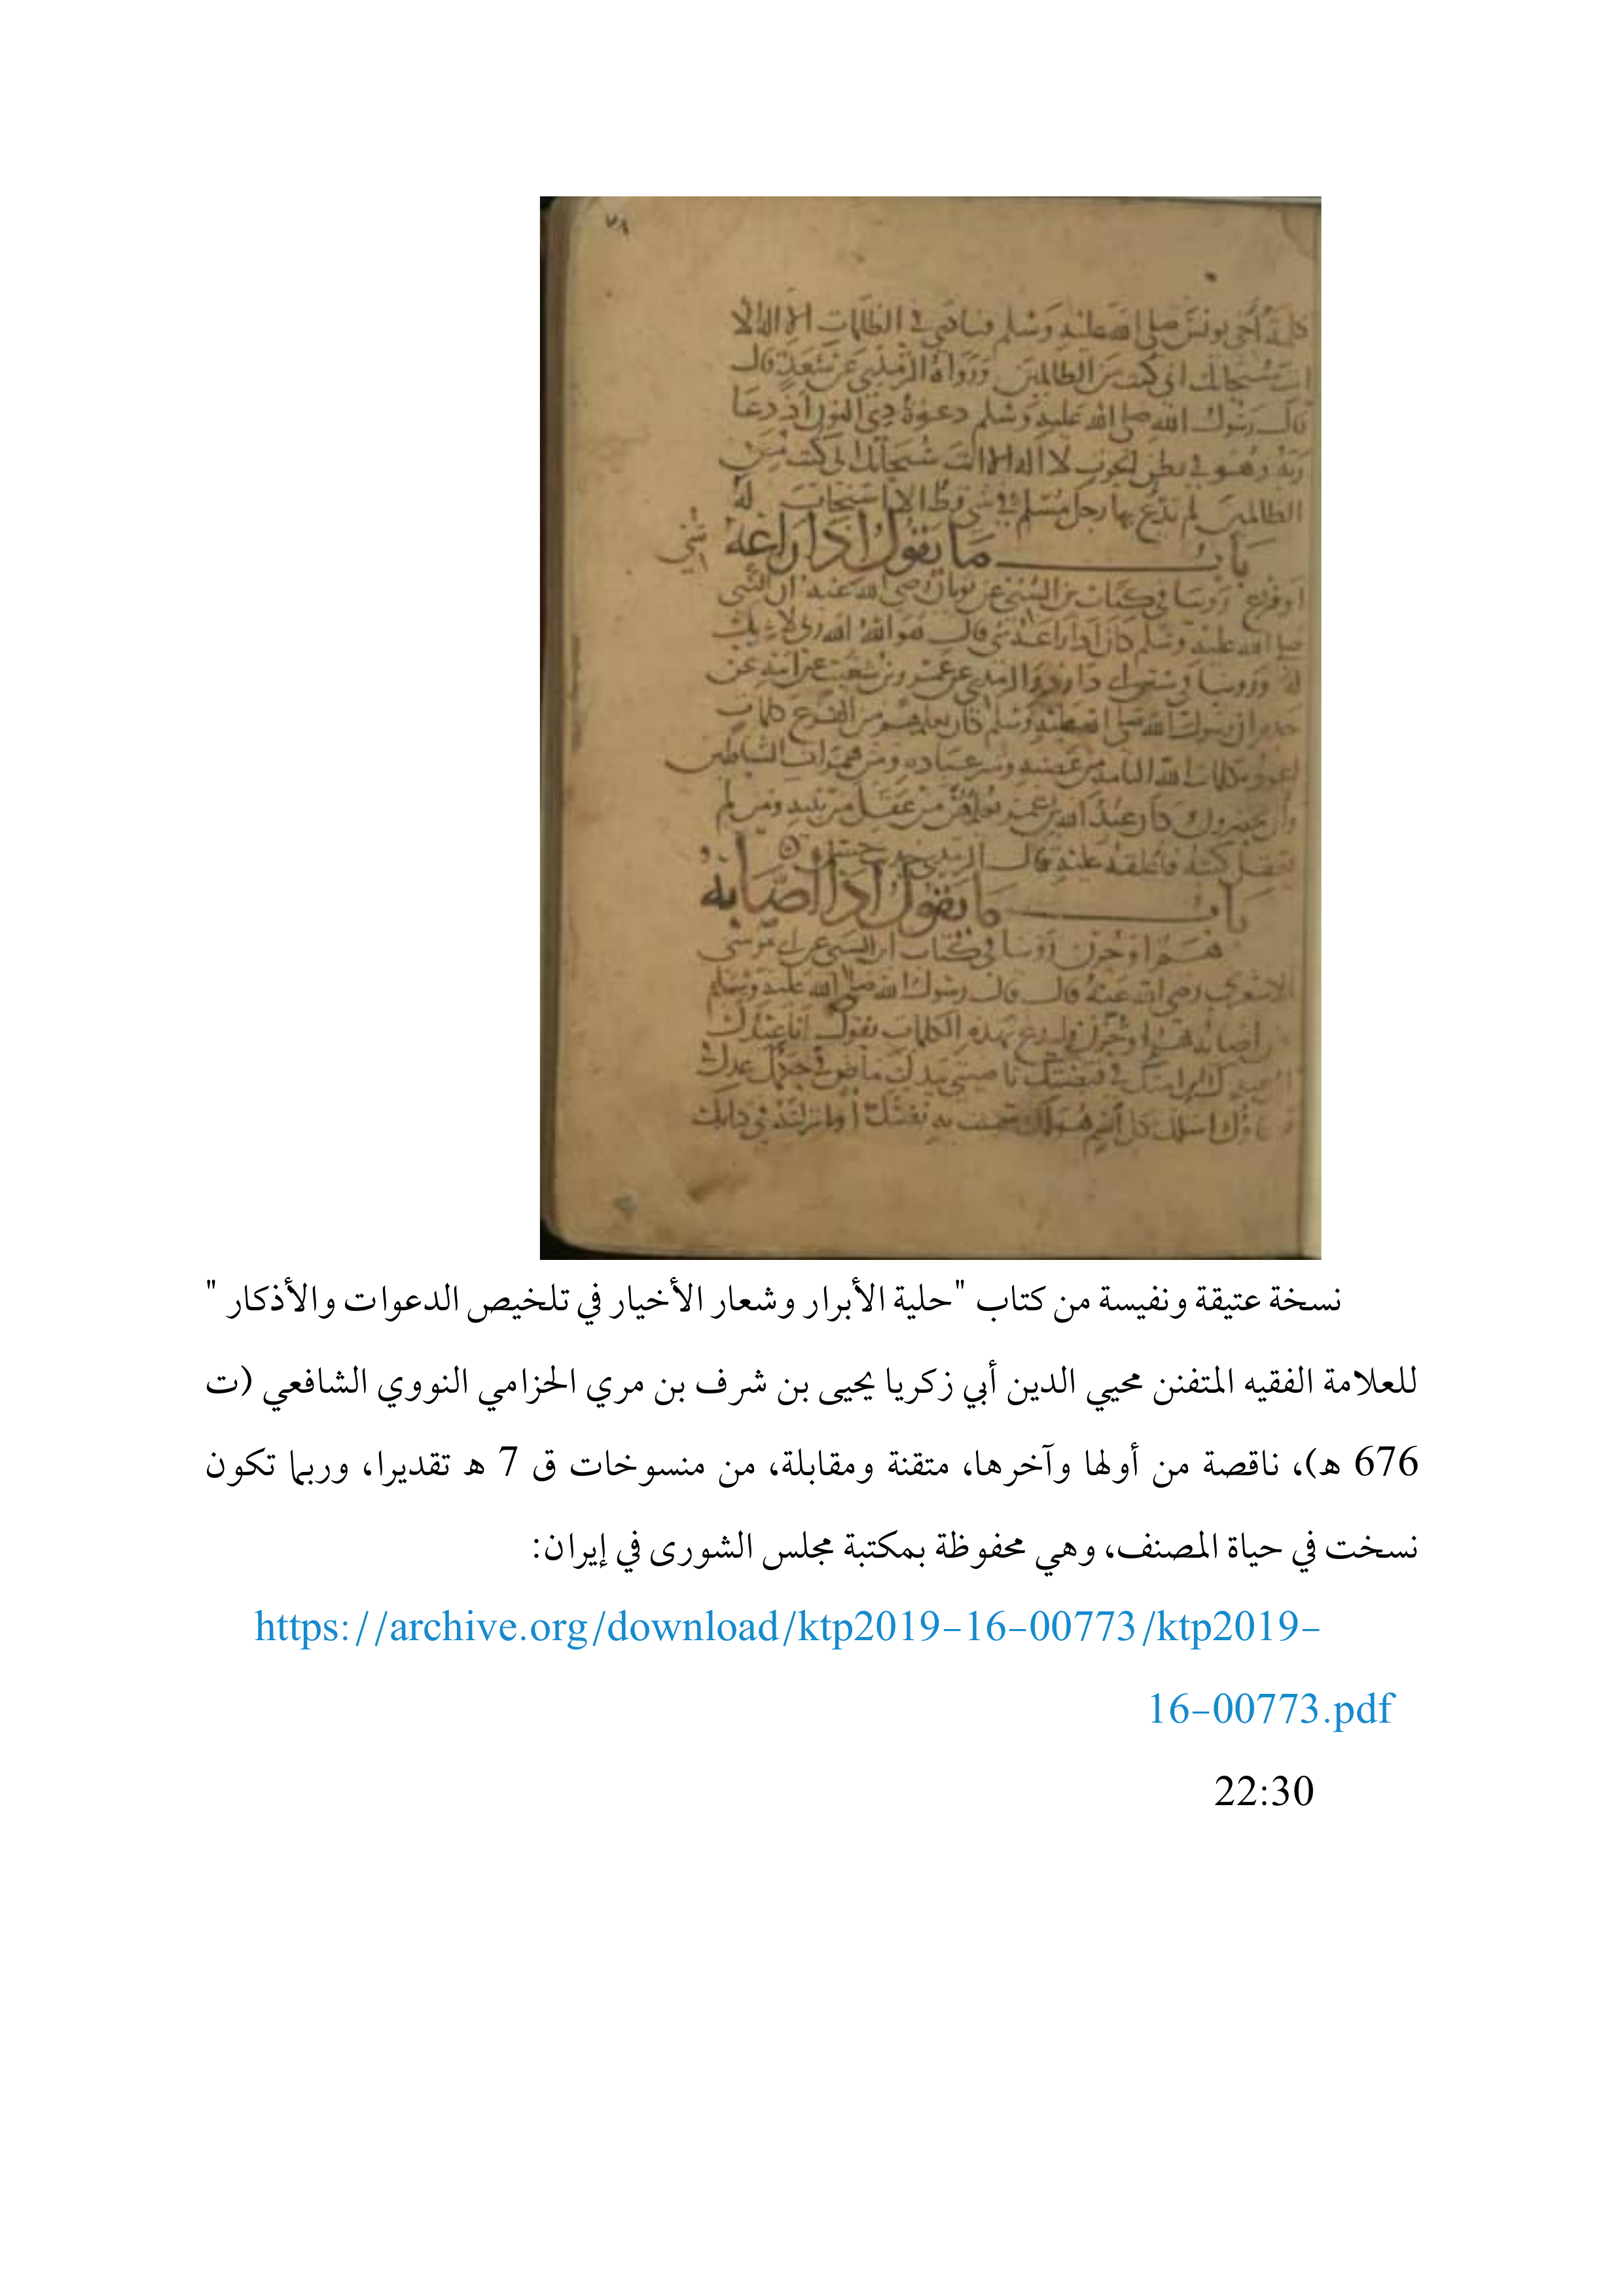 ٧٨
كلمة أخي يونس صلى الله عليه وسلم فنادى في الظلمات ان لا اله الا
انت سبحانك اني كنت من الظالمين ورواه الترمذي عن سعد قال
قال رسول الله صلى الله عليه وسلم دعوة ذي النون اذ دعا
ربه وهو في بطن الحوت لا اله الا انت سبحانك اني كنت من
الظالمين لم يدع بها رجل مسلم في شي قط الا استجاب له
باب ما يقول اذا راعه شي
او فزع روينا في كتاب بن السني عن ثوبان رضي الله عنه ان النبي
صلى الله عليه وسلم كان اذا راعه شي قال هو الله الله ربي لا شريك
له وروينا في سنن ابي داود والترمذي عن عمرو بن شعيب عن ابيه عن
جده ان رسول الله صلى الله عليه وسلم كان يعلمهم من الفزع كلمات
اعوذ بكلمات الله التامة من غضبه وشر عباده ومن همزات الشياطين
وأن يحضرون وكان عبد الله بن عمرو يعلمهن من عقل من بنيه ومن لم
يعقل كتبه فأعلقه عليه قال الترمذي حديث حسن
باب ما يقول اذا اصابه
هم او حزن روينا في كتاب ابن السني عن ابي موسى
الاشعري رضي الله عنه قال قال رسول الله صلى الله عليه وسلم
من اصابه هم او حزن فليدع بهذه الكلمات يقول انا عبدك
ابن عبدك ابن امتك في قبضتك ناصيتي بيدك ماض في حكمك عدل
في قضاؤك اسلك بكل اسم هو لك سميت به نفسك او انزلته في كتابك
نسخة عتيقة ونفيسة من كتاب "حلية الأبرار وشعار الأخيار في تلخيص الدعوات والأذكار "
للعلامة الفقيه المتفنن محيي الدين أبي زكريا يحيى بن شرف بن مري الحزامي النووي الشافعي (ت
676 هـ)، ناقصة من أولها وآخرها، متقنة ومقابلة، من منسوخات ق 7 هـ تقديرا، وربما تكون
نسخت في حياة المصنف، وهي محفوظة بمكتبة مجلس الشورى في إيران:
https://archive.org/download/ktp2019-16-00773/ktp2019-
16-00773.pdf
22:30